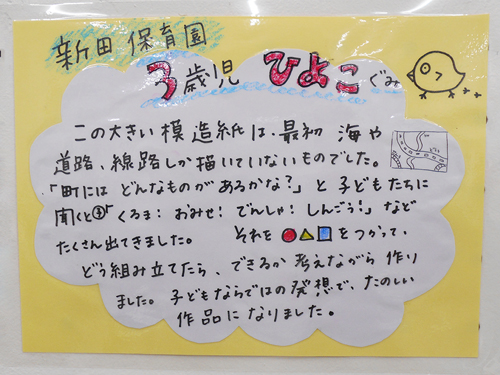 新田保育園
3歳児 ひよこぐみ
この大きい模造紙は、最初 海や
道路、線路しか描いていないものでした。
「町には どんなものがあるかな?」と 子どもたちに
聞くと「くるま! おみせ! でんしゃ! しんごう!」など
たくさん出てきました。 それを●▲■をつかって、
どう組み立てたら、できるか 考えながら 作り
ました。子どもならではの発想で、たのしい
作品になりました。